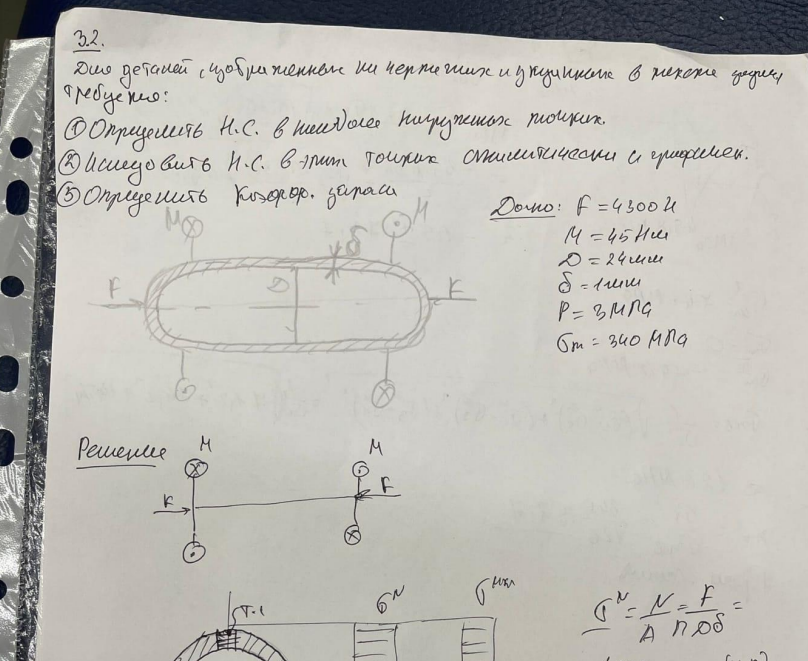 3.2.
Для деталей, изображенных на чертежах и указанных в тексте задачи
требуется:
① Определить Н.С. в наиболее нагруженных точках.
② Исследовать Н.С. в этих точках аналитически и графичек.
③ Определить коэфф. запаса
Дано: F = 4300 Н
M = 45 Нм
D = 24 мм
δ = 1 мм
P = 3 МПа
σт = 340 МПа
M M
δ
F D F
Решение
M M
F F
T.1 σᴺ
σᴺ = N/A = F/πDδ =